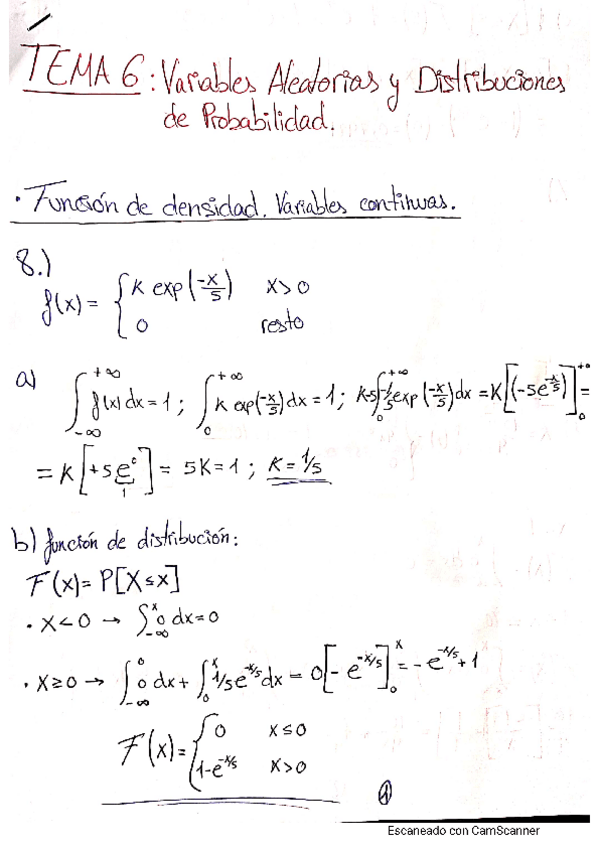 TEMA 6: Variables Aleatorias y Distribuciones
de Probabilidad.
· Función de densidad. Variables continuas.
8.)
f(x) = { k exp(-x/5) x>0
0 resto
a) ∫_{-∞}^{+∞} f(x) dx = 1 ; ∫_0^{+∞} k exp(-x/5) dx = 1 ; K·5 ∫_0^{+∞} -1/5 exp(-x/5) dx = K[(-5e^{-x/5})]_0^{+∞} =
= K[+5 e^0] = 5K = 1 ; K = 1/5
1
b) función de distribución:
F(x) = P[X ≤ x]
· X < 0 → ∫_{-∞}^x 0 dx = 0
· X ≥ 0 → ∫_{-∞}^0 0 dx + ∫_0^x 1/5 e^{-x/5} dx = 0[-e^{-x/5}]_0^x = -e^{-x/5} + 1
F(x) = { 0 x ≤ 0
1-e^{-x/5} x > 0
①
Escaneado con CamScanner